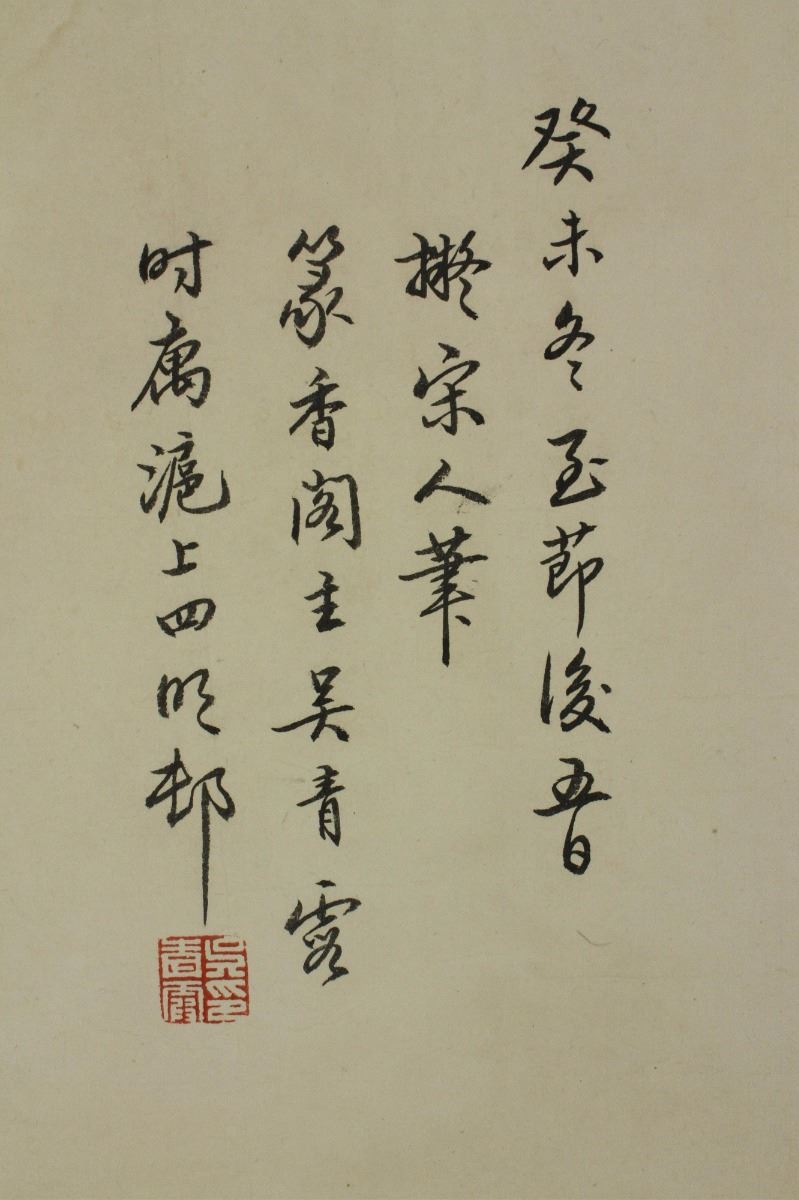 癸未冬至節後五日
擬宋人筆
篆香閣主吳青霞
时寓滬上四明邨
吳青霞印